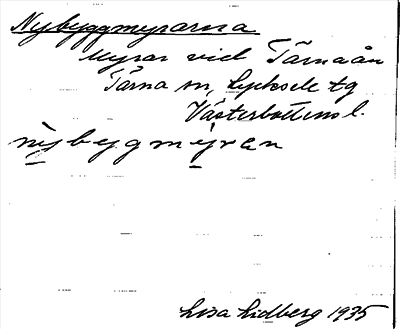 Nybyggmyrarna
Myrar vid Tärnaån
Tärna sn, Lycksele tg
Västerbottens l.
nybygmyran
Lisa Lidberg 1935